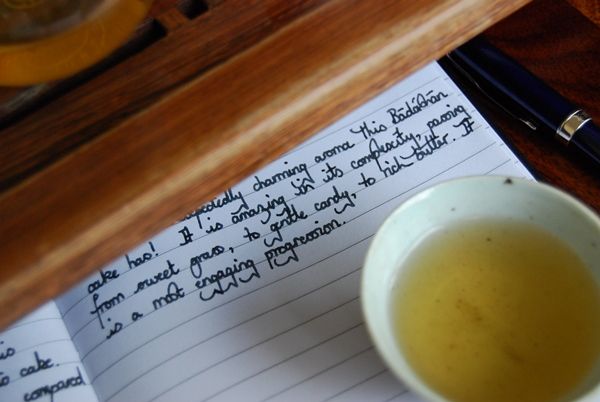 charming aroma this Bādáshān
cake has! It is amazing in its complexity, passing
from sweet grass, to gentle candy, to rich butter. It
is a most engaging progression.
cake.
compared